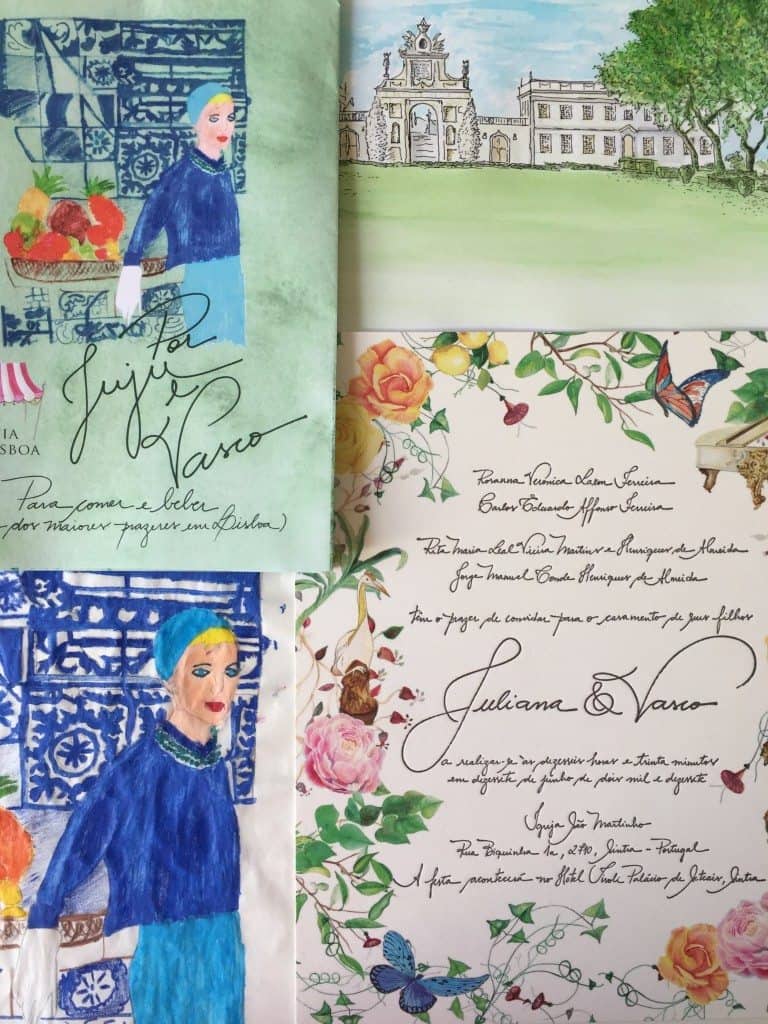 Por
Juju
e
Vasco
IA
SBOA
Para comer e beber
dos maiores prazeres em Lisboa)
Rosanna Verônica Laom Ferreira
Carlos Eduardo Affonso Ferreira
Rita Maria Leal Vieira Martins e Henriques de Almeida
Jorge Manuel Conde Henriques de Almeida
têm o prazer de convidar para o casamento de seus filhos
Juliana & Vasco
a realizar-se às dezesseis horas e trinta minutos
em dezessete de junho de dois mil e dezessete
Igreja São Martinho
Rua Biquinha 1a, 2710, Sintra - Portugal
A festa acontecerá no Hotel Tivoli Palácio de Seteais, Sintra